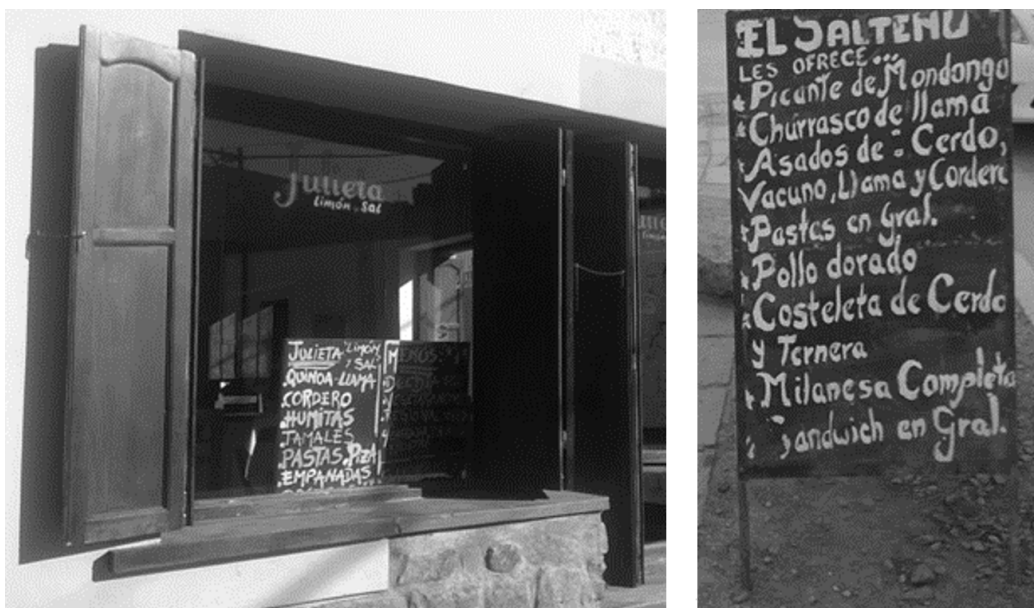 Julieta
Limón y Sal
JULIETA LIMÓN
y SAL
QUINOA-LLAMA
CORDERO
HUMITAS
TAMALES
PASTAS.PIZA
EMPANADAS
MENÚS:
DEL DIA
REGIONAL
EL SALTEÑO
LES OFRECE...
*Picante de Mondongo
*Churrasco de llama
*Asados de: Cerdo,
Vacuno, Llama y Cordero
*Pastas en Gral.
*Pollo dorado
*Costeleta de Cerdo
y Ternera
*Milanesa Completa
Sandwich en Gral.